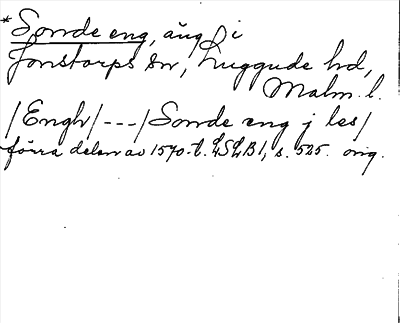 *Sonde eng, äng i
Jonstorps sn, Luggude hd,
Malm. l.
/Engh/---/Sonde eng j les/
förra delen av 1570-t. LSLB1, s. 525. orig.